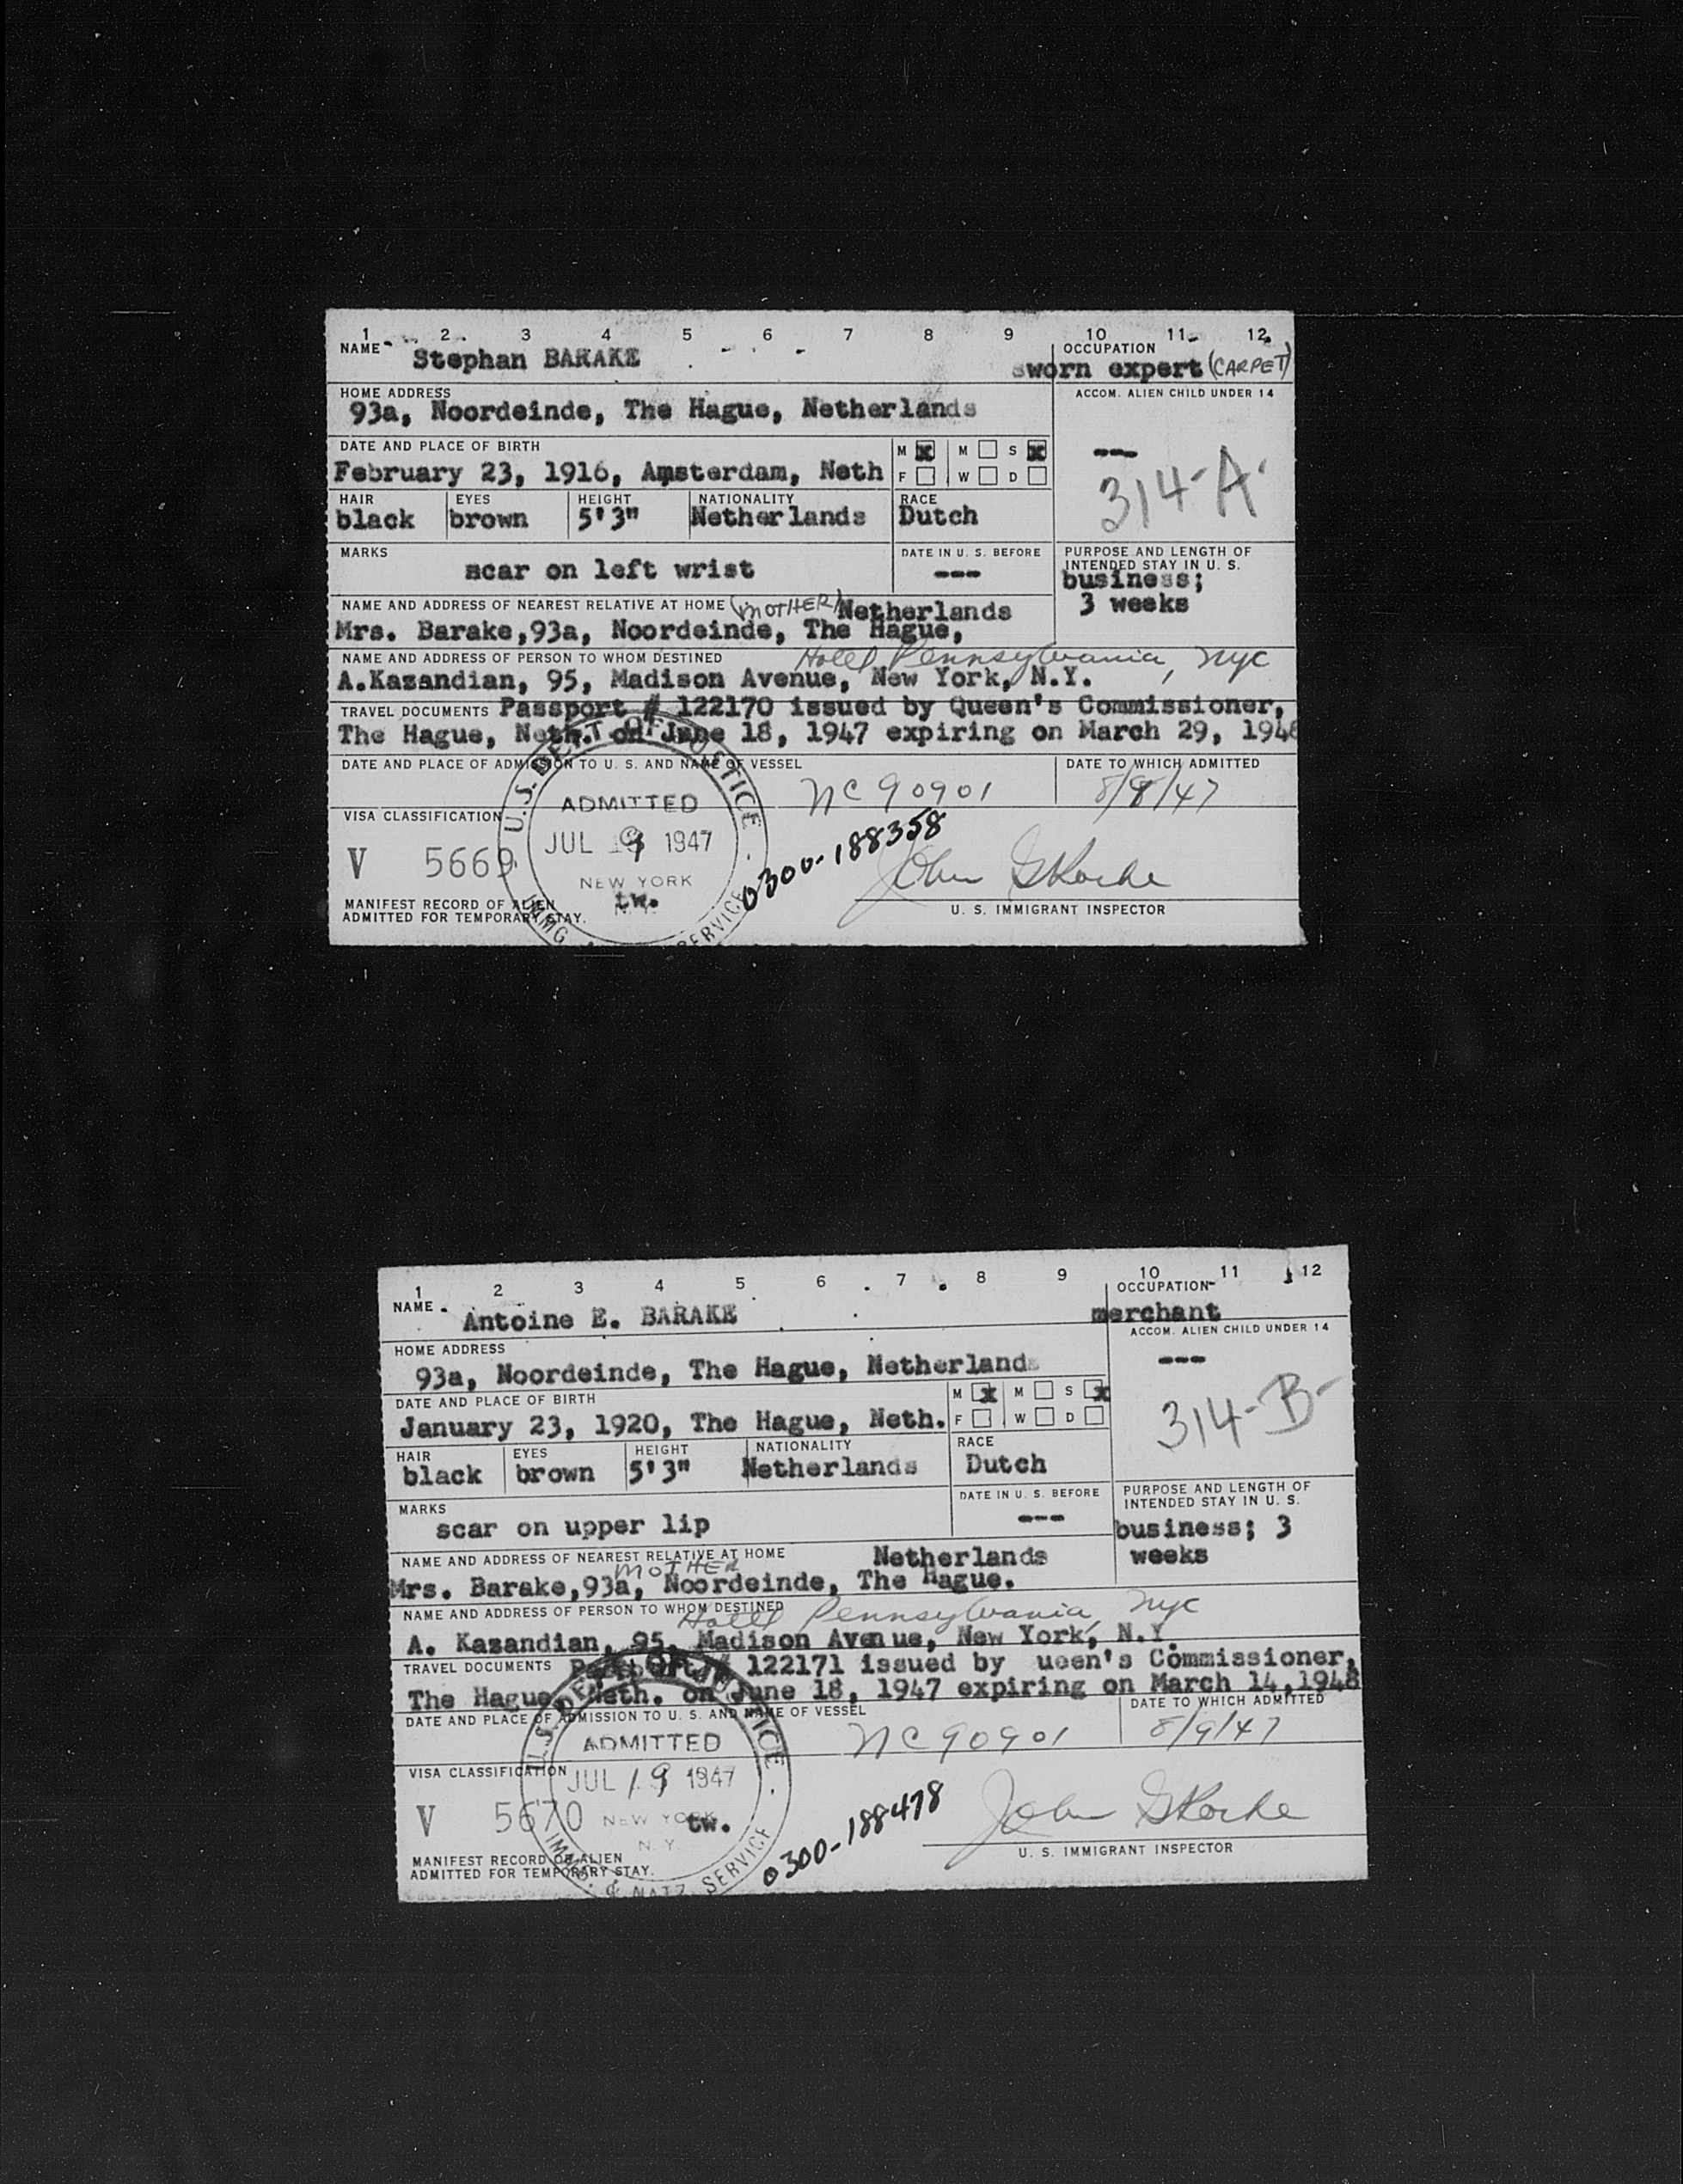 1 2 3 4 5 6 7 8 9 10 11 12
NAME Stephan BARAKE
OCCUPATION
sworn expert (CARPET)
HOME ADDRESS
93a, Noordeinde, The Hague, Netherlands
ACCOM. ALIEN CHILD UNDER 14
---
314-A
DATE AND PLACE OF BIRTH
February 23, 1916, Amsterdam, Neth
M X M S X
F W D
HAIR EYES HEIGHT NATIONALITY RACE
black brown 5'3" Netherlands Dutch
MARKS
scar on left wrist
DATE IN U. S. BEFORE
---
PURPOSE AND LENGTH OF
INTENDED STAY IN U. S.
business;
3 weeks
NAME AND ADDRESS OF NEAREST RELATIVE AT HOME (MOTHER) Netherlands
Mrs. Barake,93a, Noordeinde, The Hague,
NAME AND ADDRESS OF PERSON TO WHOM DESTINED Hotel Pennsylvania, NYC
A.Kazandian, 95, Madison Avenue, New York, N.Y.
TRAVEL DOCUMENTS Passport # 122170 issued by Queen's Commissioner,
The Hague, Neth. on June 18, 1947 expiring on March 29, 1948
DATE AND PLACE OF ADMISSION TO U. S. AND NAME OF VESSEL
NC 90901
DATE TO WHICH ADMITTED
8/9/47
VISA CLASSIFICATION
V 5669
U.S. DEPT OF JUSTICE
ADMITTED
JUL 9 1947
NEW YORK
N.Y.
tw.
IMMG. SERVICE
0300-188358
U. S. IMMIGRANT INSPECTOR
MANIFEST RECORD OF ALIEN
ADMITTED FOR TEMPORARY STAY.
1 2 3 4 5 6 7 8 9 10 11 12
NAME Antoine E. BARAKE
OCCUPATION
merchant
HOME ADDRESS
93a, Noordeinde, The Hague, Netherlands
ACCOM. ALIEN CHILD UNDER 14
---
314-B-
DATE AND PLACE OF BIRTH
January 23, 1920, The Hague, Neth.
M X M S X
F W D
HAIR EYES HEIGHT NATIONALITY RACE
black brown 5'3" Netherlands Dutch
MARKS
scar on upper lip
DATE IN U. S. BEFORE
---
PURPOSE AND LENGTH OF
INTENDED STAY IN U. S.
business; 3
weeks
NAME AND ADDRESS OF NEAREST RELATIVE AT HOME MOTHER Netherlands
Mrs. Barake,93a, Noordeinde, The Hague.
NAME AND ADDRESS OF PERSON TO WHOM DESTINED Hotel Pennsylvania, NYC
A. Kazandian, 95, Madison Avenue, New York, N.Y.
TRAVEL DOCUMENTS Passport # 122171 issued by ueen's Commissioner,
The Hague, Neth. on June 18, 1947 expiring on March 14,1948
DATE AND PLACE OF ADMISSION TO U. S. AND NAME OF VESSEL
NC 90901
DATE TO WHICH ADMITTED
8/9/47
VISA CLASSIFICATION
V 5670
U.S. DEPT OF JUSTICE
ADMITTED
JUL 9 1947
NEW YORK
N.Y.
tw.
IMMG. & NATZ. SERVICE
0300-188478
U. S. IMMIGRANT INSPECTOR
MANIFEST RECORD OF ALIEN
ADMITTED FOR TEMPORARY STAY.